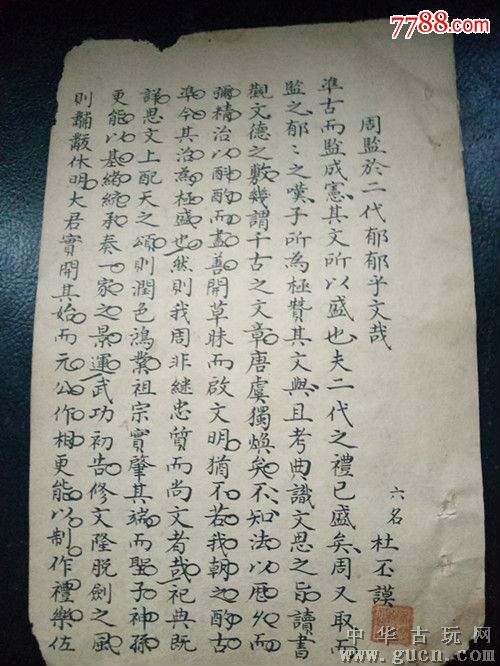 7788.com
周監於二代郁郁乎文哉
六名 杜丕謨
準古而監成憲其文所以盛也夫二代之禮已盛矣周又取而
監之郁々之嘆子所為極贊其文與且考典識文思之旨讀書
觀文德之敷幾謂千古之文章唐虞獨煥矣不知法以歷久而
彌精治以酌而盡善開草昧而啟文明猶不若我朝之酌古
準今其治為極盛也然則我周非繼忠質而尚文者哉祀典既
詳思文上配天之頌則潤色鴻業祖宗實肇其端而聖子神孫
更能以基緒纘承奏一家之景運武功初告修文隆脫劍之風
則黼黻休明大君實開其始而元公作相更能以制作禮樂佐
中华古玩网
www.gucn.com